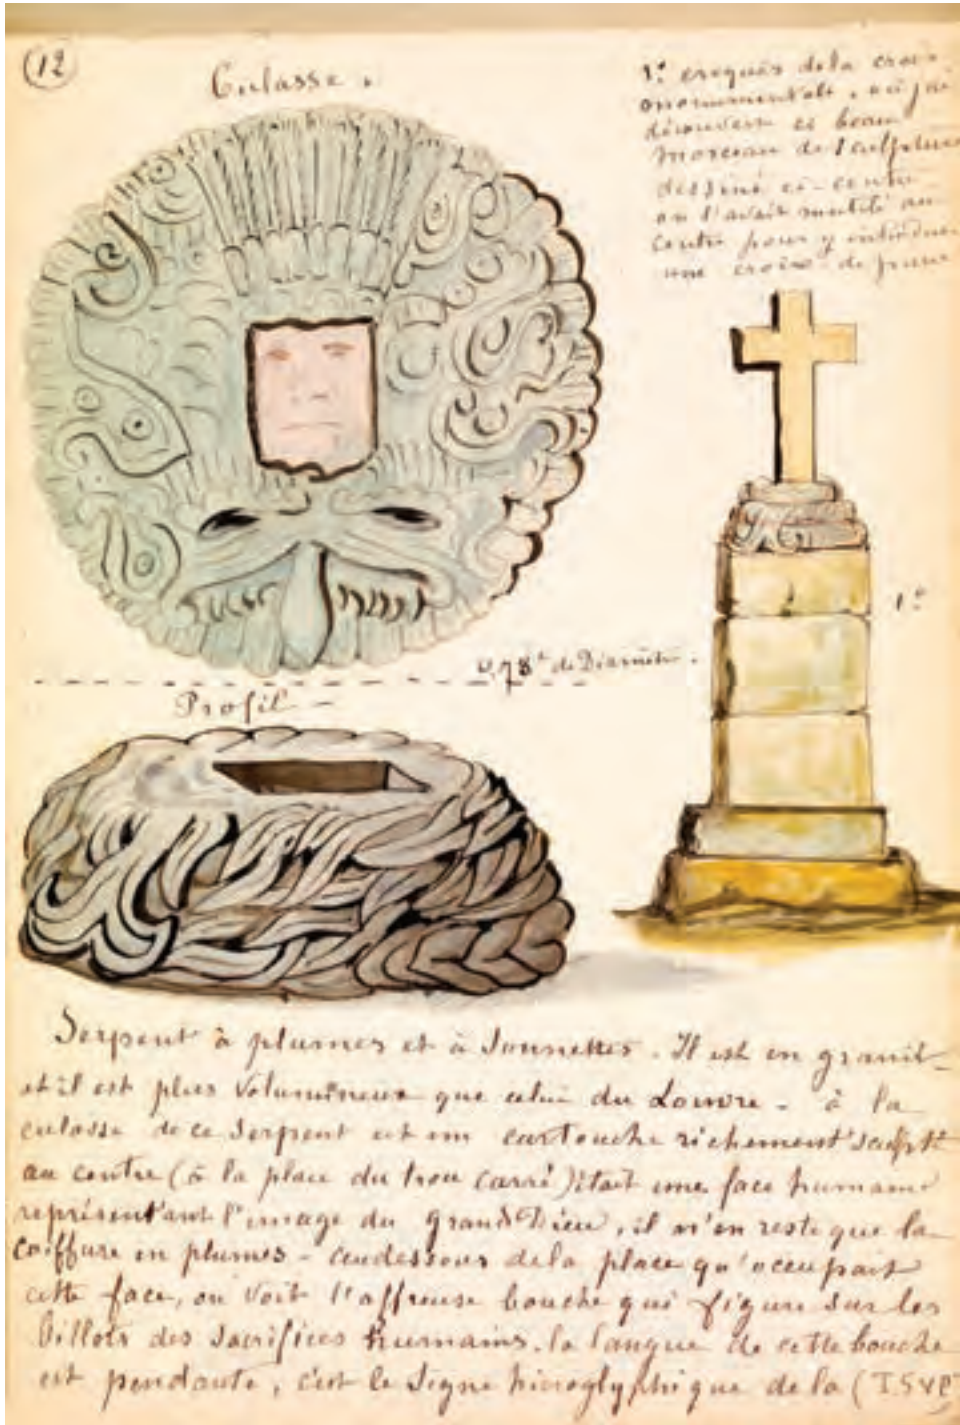 (12)
Culasse.
1º croquis de la croix
monumentale, où j'ai
découvert ce beau
morceau de sculpture
dessiné ci-contre
on l'avait mutilé au
centre pour y introduire
une croix de pierre
1º
0,78 de Diamètre.
Profil -
Serpent à plumes et à Sonnettes. Il est en granit
et il est plus volumineux que celui du Louvre - à la
culasse de ce Serpent est un cartouche richement sculpté
au centre (à la place du trou carré) était une face humaine
représentant l'image du Grand Dieu, il n'en reste que la
coiffure en plumes - au dessous de la place qu'occupait
cette face, on voit l'affreuse bouche qui figure sur les
billots des Sacrifices humains. la langue de cette bouche
est pendante, c'est le Signe hieroglyphique de la (T.S.V.P.)